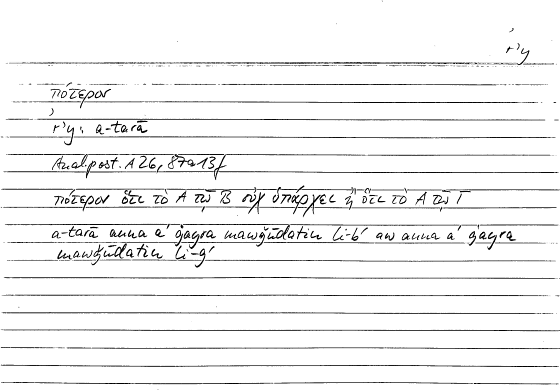 rʾy
πότερον
rʾy: a-tarā
Anal.post. A 26, 87a13f
πότερον ὅτι τὸ Α τῷ Β οὐχ ὑπάρχει ἢ ὅτι τὸ Α τῷ Γ
a-tarā anna a' ġayra mawǧūdatin li-b' aw anna a' ġayra
mawǧūdatin li-g'